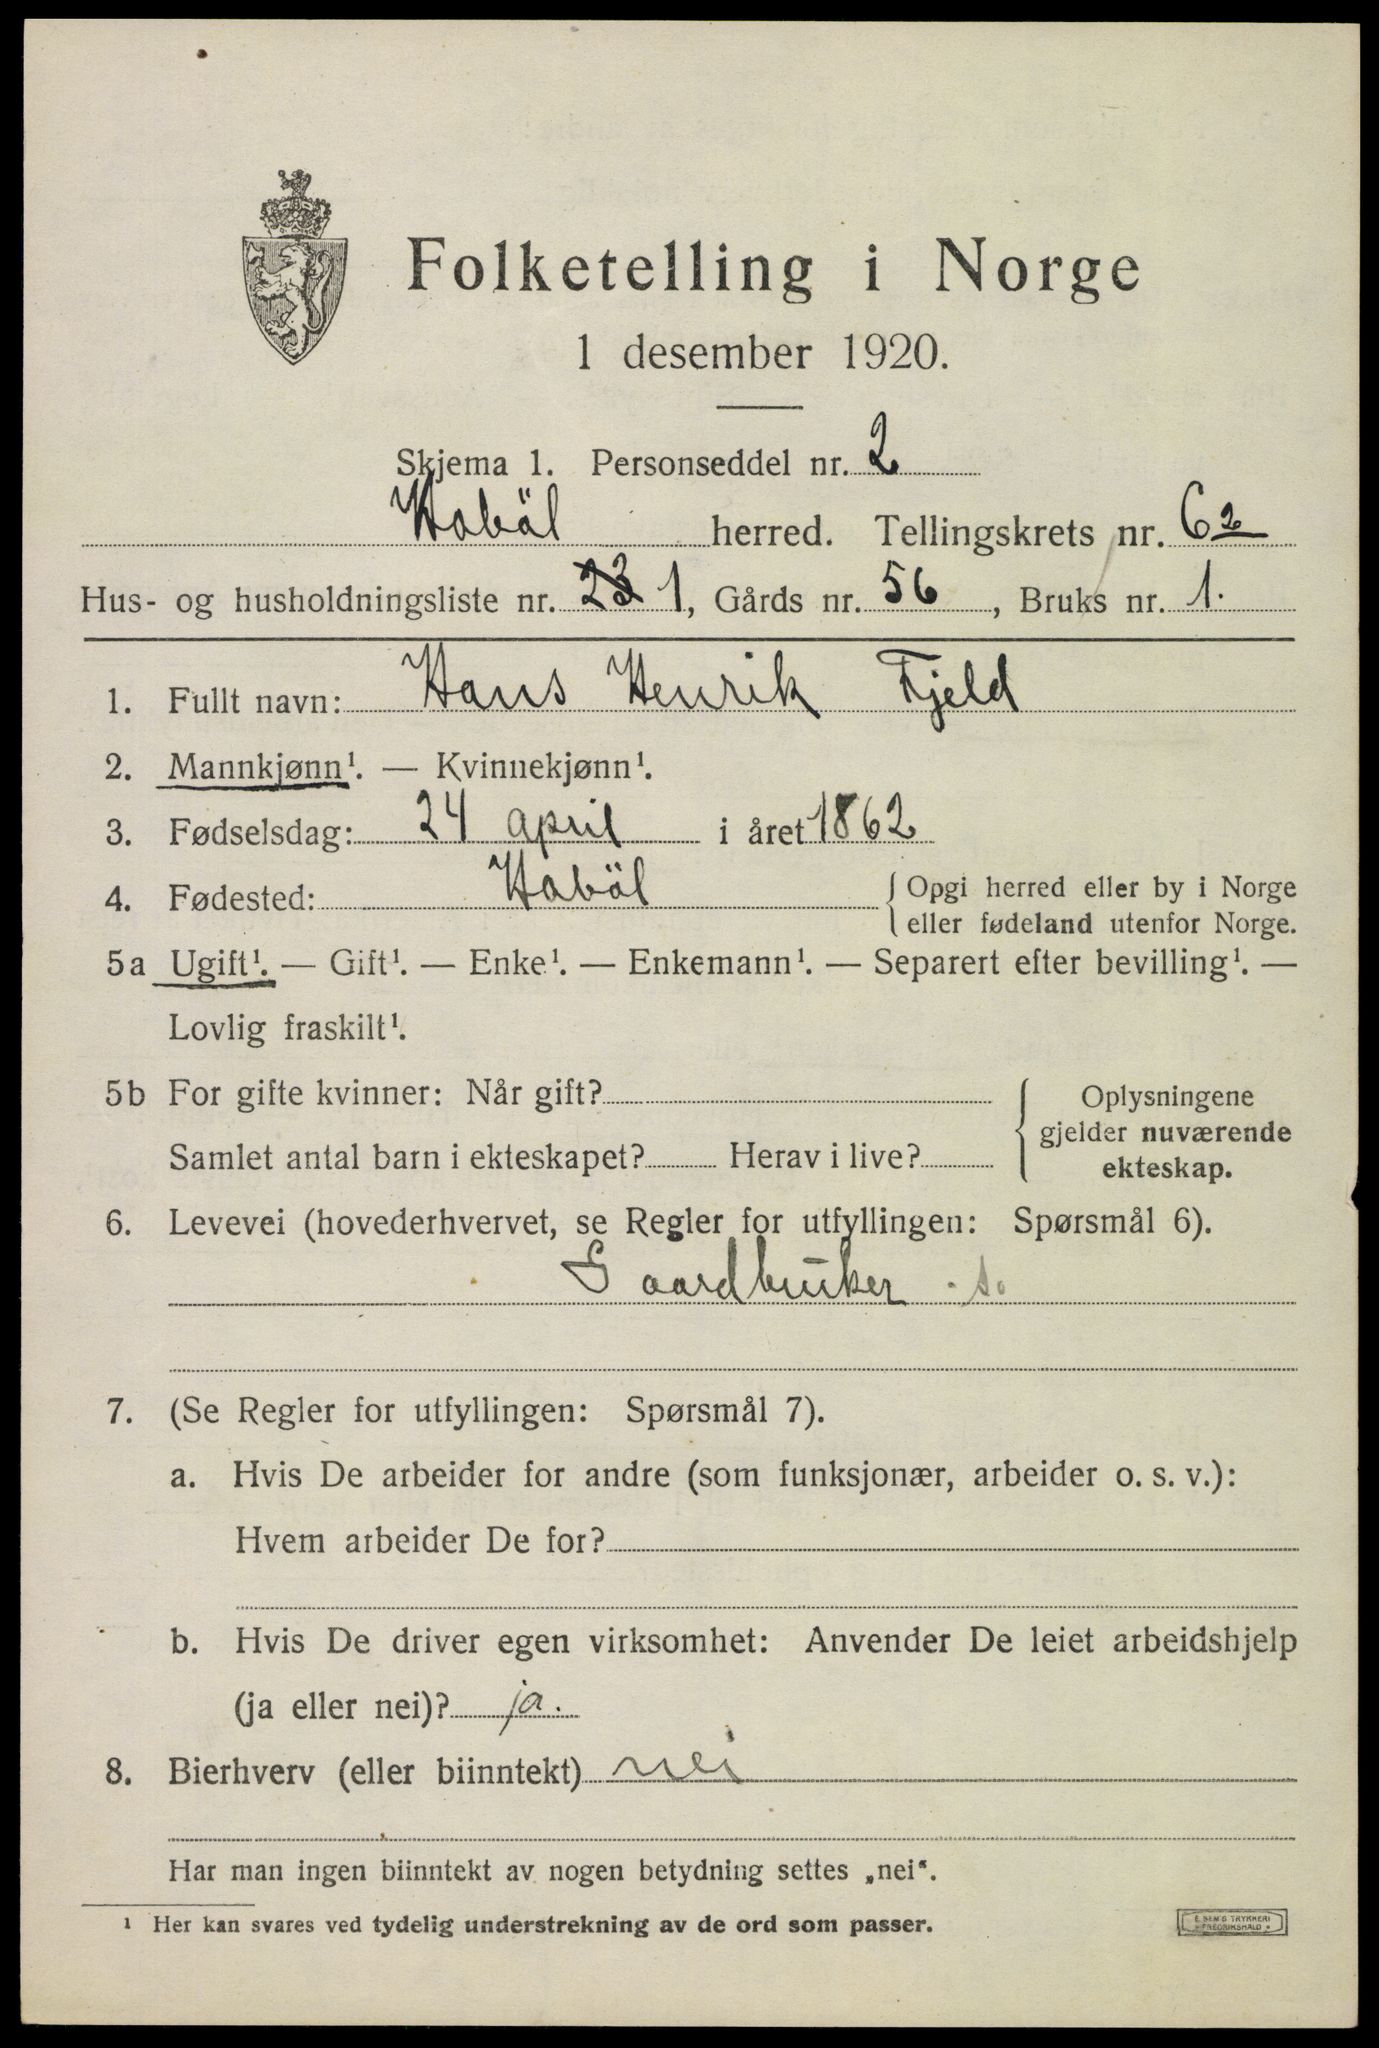 Folketelling i Norge
1 desember 1920.
Skjema 1. Personseddel nr. 2
Haböl herred. Tellingskrets nr. 6 2
Hus- og husholdningsliste nr. 23 1, Gårds nr. 56, Bruks nr. 1.
1. Fullt navn: Hans Henrik Fjeld
2. Mannkjønn¹. — Kvinnekjønn¹.
3. Fødselsdag: 24 april i året 1862
4. Fødested: Haböl { Opgi herred eller by i Norge
eller fødeland utenfor Norge.
5a Ugift¹. — Gift¹. — Enke¹. — Enkemann¹. — Separert efter bevilling¹. —
Lovlig fraskilt¹.
5b For gifte kvinner: Når gift? { Oplysningene
gjelder nuværende
Samlet antal barn i ekteskapet? Herav i live?
ekteskap.
6. Levevei (hovederhvervet, se Regler for utfyllingen: Spørsmål 6).
Gaardbruker s.
7. (Se Regler for utfyllingen: Spørsmål 7).
a. Hvis De arbeider for andre (som funksjonær, arbeider o. s. v.):
Hvem arbeider De for?
b. Hvis De driver egen virksomhet: Anvender De leiet arbeidshjelp
(ja eller nei)? ja.
8. Bierhverv (eller biinntekt) nei
Har man ingen biinntekt av nogen betydning settes „nei“.
¹ Her kan svares ved tydelig understrekning av de ord som passer.
E. SEM'S TRYKKERI
FREDRIKSHALD